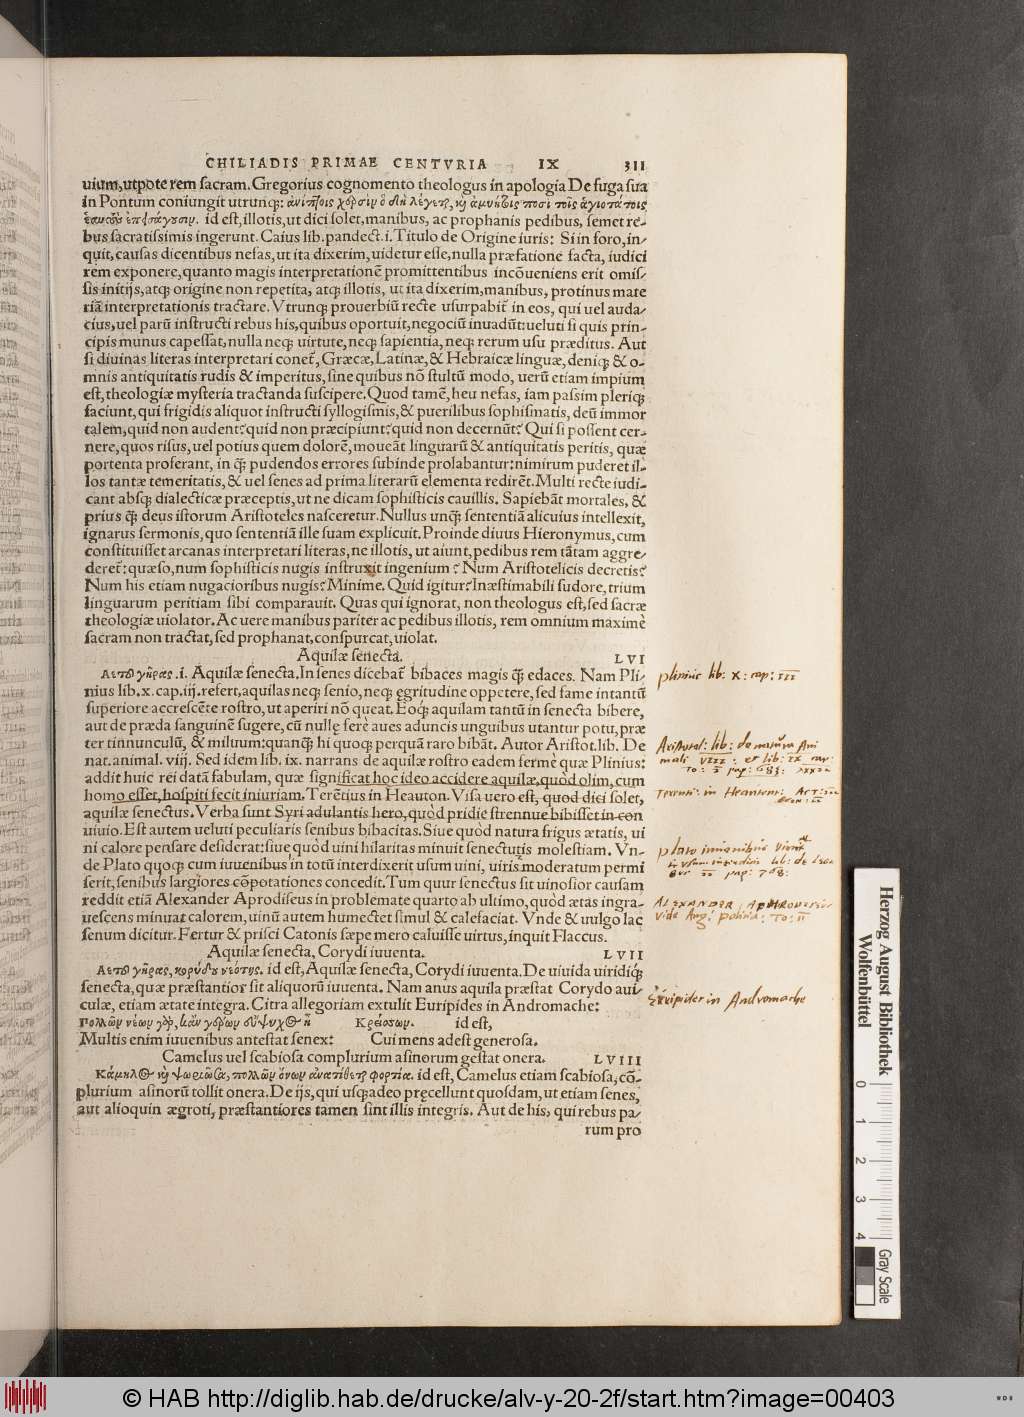 CHILIADIS PRIMAE CENTVRIA IX 311
uium, utpote rem sacram. Gregorius cognomento theologus in apologia De fuga sua
in Pontum coniungit utrunq;: ἀνίπτοις χερσὶν ὃ δὴ λέγεται, καὶ ἀμυήτοις ποσὶ τοῖς ἁγιοτάτοις
ἑαυτοὺς ἐπεισάγουσιν. id est, illotis, ut dici solet, manibus, ac prophanis pedibus, semet re⸗
bus sacratissimis ingerunt. Caius lib. pandect. i. Titulo de Origine iuris: Si in foro, in⸗
quit, causas dicentibus nefas, ut ita dixerim, uidetur esse, nulla præfatione facta, iudici
rem exponere, quanto magis interpretationē promittentibus incōueniens erit omis⸗
sis initijs, atq; origine non repetita, atq; illotis, ut ita dixerim, manibus, protinus mate
riā interpretationis tractare. Vtrunq; prouerbiū recte usurpabit̃ in eos, qui uel auda⸗
cius, uel parū instructi rebus his, quibus oportuit, negociū inuadūt: ueluti si quis prin⸗
cipis munus capessat, nulla neq; uirtute, neq; sapientia, neq; rerum usu præditus. Aut
si diuinas literas interpretari conet̃, Græcæ, Latinæ, & Hebraicæ linguæ, deniq; & o⸗
mnis antiquitatis rudis & imperitus, sine quibus nō stultū modo, uerū etiam impium
est, theologiæ mysteria tractanda suscipere. Quod tamē, heu nefas, iam passim pleriq;
faciunt, qui frigidis aliquot instructi syllogismis, & puerilibus sophismatis, deū immor
talem, quid non audent? quid non præcipiunt? quid non decernūt? Qui si possent cer⸗
nere, quos risus, uel potius quem dolorē, moueāt linguarū & antiquitatis peritis, quæ
portenta proferant, in q̄; pudendos errores subinde prolabantur: nimirum puderet il⸗
los tantæ temeritatis, & uel senes ad prima literarū elementa redirēt. Multi recte iudi⸗
cant absq; dialecticæ præceptis, ut ne dicam sophisticis cauillis. Sapiebāt mortales, &
prius q̄; deus istorum Aristoteles nasceretur. Nullus unq̄; sententiā alicuius intellexit,
ignarus sermonis, quo sententiā ille suam explicuit. Proinde diuus Hieronymus, cum
constituisset arcanas interpretari literas, ne illotis, ut aiunt, pedibus rem tātam aggre⸗
deret̃: quæso, num sophisticis nugis instruxit ingenium? Num Aristotelicis decretis?
Num his etiam nugacioribus nugis? Minime. Quid igitur? Inæstimabili sudore, trium
linguarum peritiam sibi comparauit. Quas qui ignorat, non theologus est, sed sacræ
theologiæ uiolator. Ac uere manibus pariter ac pedibus illotis, rem omnium maximè
sacram non tractat, sed prophanat, conspurcat, uiolat.
Aquilæ senecta. LVI
Ἀετοῦ γῆρας .i. Aquilæ senecta. In senes dicebat̃ bibaces magis q̄; edaces. Nam Pli⸗
nius lib. x. cap. iij. refert, aquilas neq; senio, neq; ęgritudine oppetere, sed fame intantū
superiore accrescēte rostro, ut aperiri nō queat. Eoq; aquilam tantū in senecta bibere,
aut de præda sanguinē sugere, cū nullę ferè aues aduncis unguibus utantur potu, præ
ter tinnunculū, & miluum: quanq̄; hi quoq; perquā raro bibāt. Autor Aristot. lib. De
nat. animal. viij. Sed idem lib. ix. narrans de aquilæ rostro eadem fermè quæ Plinius:
addit huic rei datā fabulam, quæ significat hoc ideo accidere aquilæ, quòd olim, cum
homo esset, hospiti fecit iniuriam. Terētius in Heauton. Visa uero est, quod dici solet,
aquilæ senectus. Verba sunt Syri adulantis hero, quòd pridie strennue bibisset in con
uiuio. Est autem ueluti peculiaris senibus bibacitas. Siue quòd natura frigus ætatis, ui
ni calore pensare desiderat: siue quòd uini hilaritas minuit senectutis molestiam. Vn⸗
de Plato quoq; cum iuuenibus in totū interdixerit usum uini, uiris moderatum permi
serit, senibus largiores cōpotationes concedit. Tum quur senectus sit uinosior causam
reddit etiā Alexander Aprodiseus in problemate quarto ab ultimo, quòd ætas ingra⸗
uescens minuat calorem, uinū autem humectet simul & calefaciat. Vnde & uulgo lac
senum dicitur. Fertur & prisci Catonis sæpe mero caluisse uirtus, inquit Flaccus.
Aquilæ senecta, Corydi iuuenta. LVII
Ἀετοῦ γῆρας, κορύδου νεότης. id est, Aquilæ senecta, Corydi iuuenta. De uiuida uiridiq;
senecta, quæ præstantior sit aliquorū iuuenta. Nam anus aquila præstat Corydo aui⸗
culæ, etiam ætate integra. Citra allegoriam extulit Euripides in Andromache:
Πολλῶν νέων γὰρ, κἂν γέρων εὔψυχος ᾖ Κρείσσων. id est,
Multis enim iuuenibus antestat senex: Cui mens adest generosa.
Camelus uel scabiosa complurium asinorum gestat onera. LVIII
Κάμηλος καὶ ψωριῶσα, πολλῶν ὄνων ἀνατίθεται φορτία. id est, Camelus etiam scabiosa, cō⸗
plurium asinorū tollit onera. De ijs, qui usq; adeo pręcellunt quosdam, ut etiam senes,
aut alioquin ægroti, præstantiores tamen sint illis integris. Aut de his, qui rebus pa⸗
rum pro
plinius lib: X: cap: III
Aristotel: lib: de natura Ani
mali VIII: et lib: IX cap:
Terenti: in Heautont: Act: 
lib: de 
pag: 768:
ALEXANDER APHRODISEUS
vide Ang: politia: TO: II
Euripides in Andromache
Herzog August Bibliothek
Wolfenbüttel
0 1 2 3 4
Gray Scale
© HAB http://diglib.hab.de/drucke/alv-y-20-2f/start.htm?image=00403